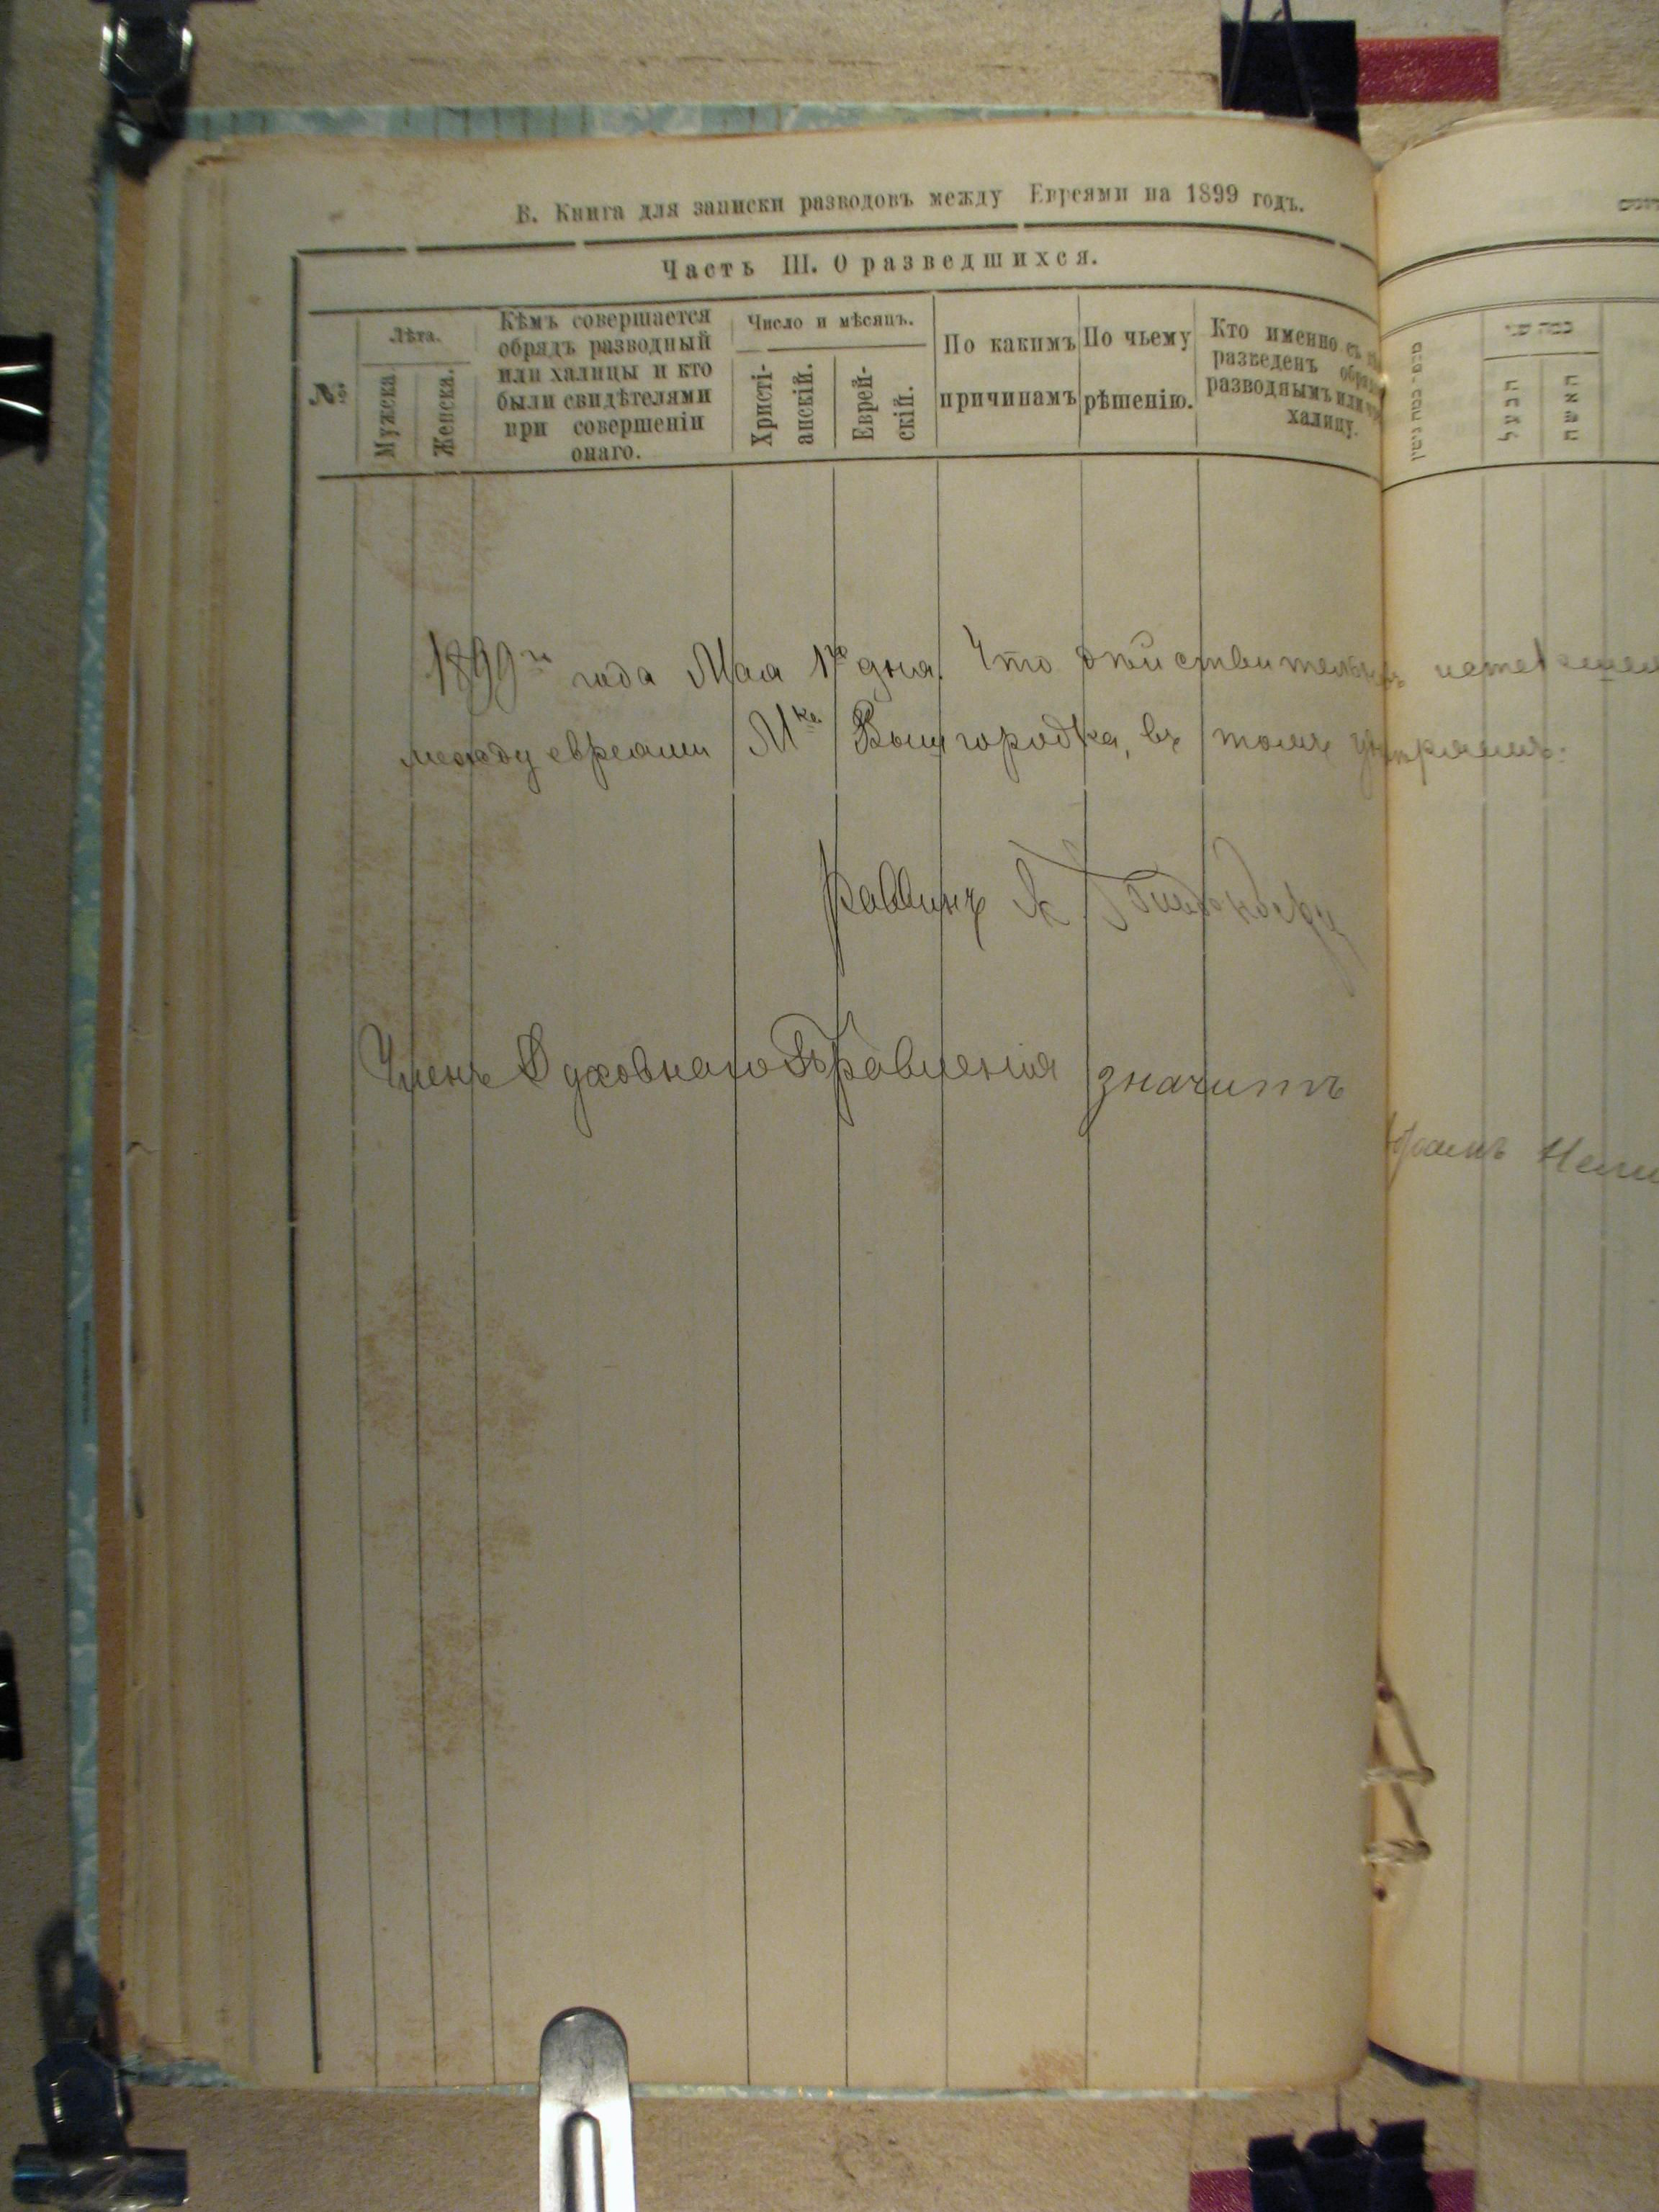 В. Книга для записки разводовъ между Евреями на 1899 годъ.
Часть III. О разведшихся.
№
Лѣта.
Мужска.
Женска.
Кѣмъ совершается
обрядъ разводный
или халицы и кто
были свидѣтелями
при совершеніи
онаго.
Число и мѣсяцъ.
Христі-
анскій.
Еврей-
скій.
По какимъ
причинамъ
По чьему
рѣшенію.
Кто именно съ
разведенъ
разводнымъ или
халицу.
כמה שני
הבעל
האשה
1899го года Мая 1го дня. Что дѣйствительно
между евреями Мка Вышгородка, въ томъ
Раввинъ
Членъ Духовнаго Правленія значитъ